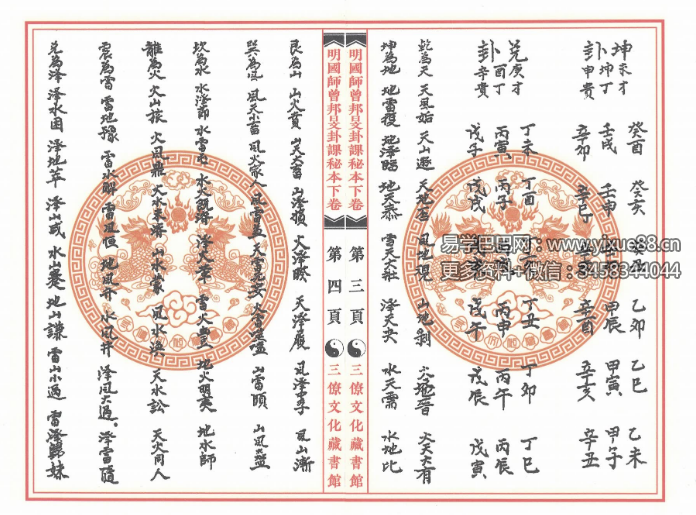 坤 未才
卦 坤丁 申貴
癸酉 癸亥 乙卯 乙巳 乙未
壬戌 壬申 甲辰 甲寅 甲子
辛卯 辛巳 辛酉 辛亥 辛丑
兌 庚才
卦 酉丁 辛貴
丁未 丁酉 丁丑 丁卯 丁巳
丙寅 丙子 丙申 丙午 丙辰
戊子 戊戌 戊午 戊辰 戊寅
乾為天 天風始 天山遯 天地否 風地觀 山地剝 火地晉 火天大有
坤為地 地雷復 地澤臨 地天泰 雷天大壯 澤天夬 水天需 水地比
明國師曾邦旻卦課秘本下卷 第三頁 三僚文化藏書館
明國師曾邦旻卦課秘本下卷 第四頁 三僚文化藏書館
艮為山 山火賁 山天大畜 山澤損 火澤睽 天澤履 風澤中孚 風山漸
巽為風 風天小畜 風火家人 風雷益 天雷无妄 火雷噬嗑 山雷頤 山風蠱
坎為水 水澤節 水雷屯 水火既濟 澤火革 雷火豐 地火明夷 地水師
離為火 火山旅 火風鼎 火水未濟 山水蒙 風水渙 天水訟 天火同人
震為雷 雷地豫 雷水解 雷風恒 地風升 水風井 澤風大過。澤雷隨
兌為澤 澤水困 澤地萃 澤山咸 水山蹇 地山謙 雷山小過 雷澤歸妹
易学巴巴网：www.yixue88.cn
更多资料+微信：3458344044